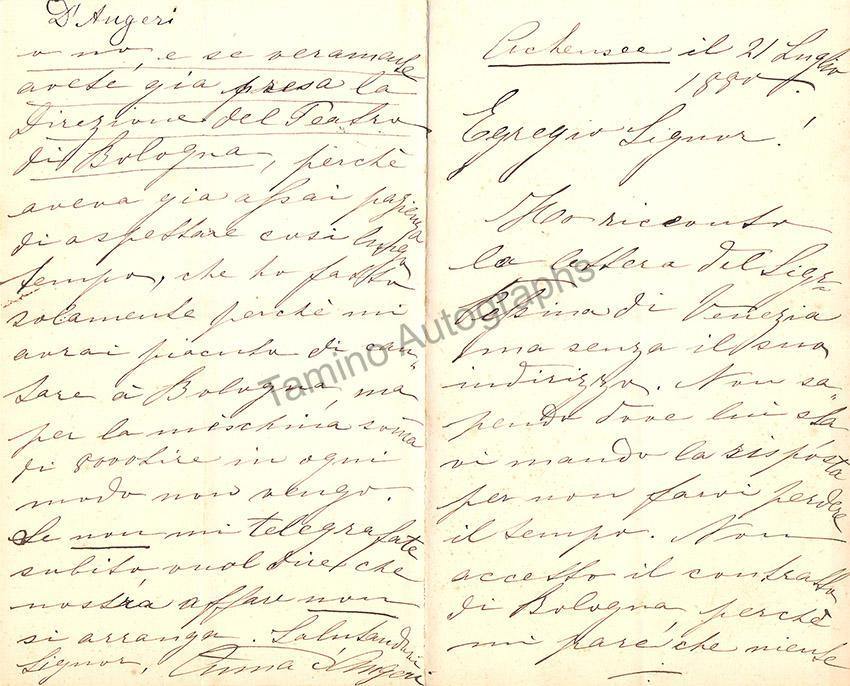 Achensee il 21 Luglio
1880.
Egregio Signor!
Ho riccevuto
la lettera del Sigr
di Venezia
ma senza il suo
indirizzo. Non sa-
pendo dove lui sta
vi mando la risposta
per non farvi perdere
il tempo. Non
accetto il contratto
di Bologna, perchè
mi pare che niente
D'Angeri
o no, e se veramente
avete già presa la
Direzione del Teatro
di Bologna, perchè
aveva già assai pazienza
di aspettare cosi lungo
tempo, che ho fatto
solamente perchè mi
avrai piaciuto di can-
tare à Bologna, ma
per la meschina somma
di 8000 lire in ogni
modo non vengo.
Se non mi telegrafate
subito vuol dire che
nostra affare non
si arranga. Salutandovi
Signor, Anna d'Angeri
Tamino Autographs